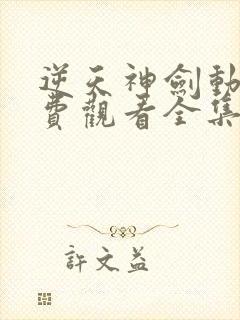 逆天神劍動
費觀看全集
許文益